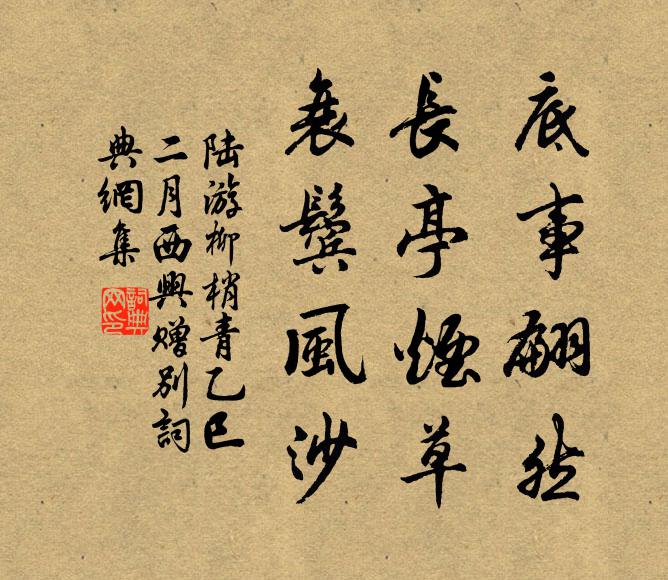 底事翩然
長亭煙草
衰鬢風沙
陸游柳梢青乙巳
二月西興贈別詞
典網集
詞典網印